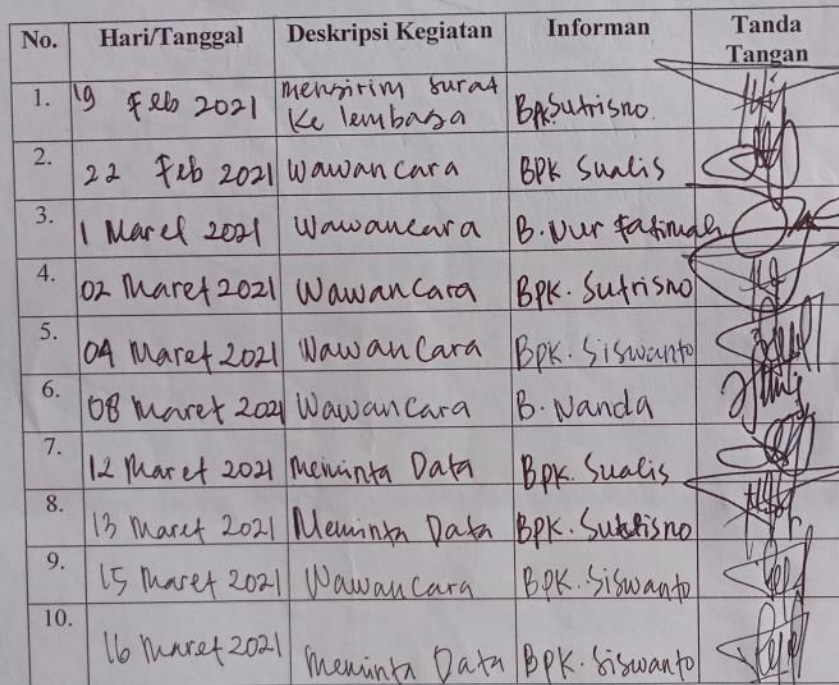 No. Hari/Tanggal Deskripsi Kegiatan Informan Tanda Tangan
1. 19 Feb 2021 mengirim surat ke lembaga BPk Sutrisno.
2. 22 Feb 2021 Wawancara BPK Sualis
3. 1 Maret 2021 Wawancara B. Nur Fatimah
4. 02 Maret 2021 Wawancara BPK. Sutrisno
5. 04 Maret 2021 Wawancara BPK. Siswanto
6. 08 Maret 2021 Wawancara B. Nanda
7. 12 Maret 2021 Meminta Data BPK. Sualis
8. 13 Maret 2021 Meminta Data BPK. Sutrisno
9. 15 Maret 2021 Wawancara BPK. Siswanto
10. 16 Maret 2021 Meminta Data BPK. Siswanto